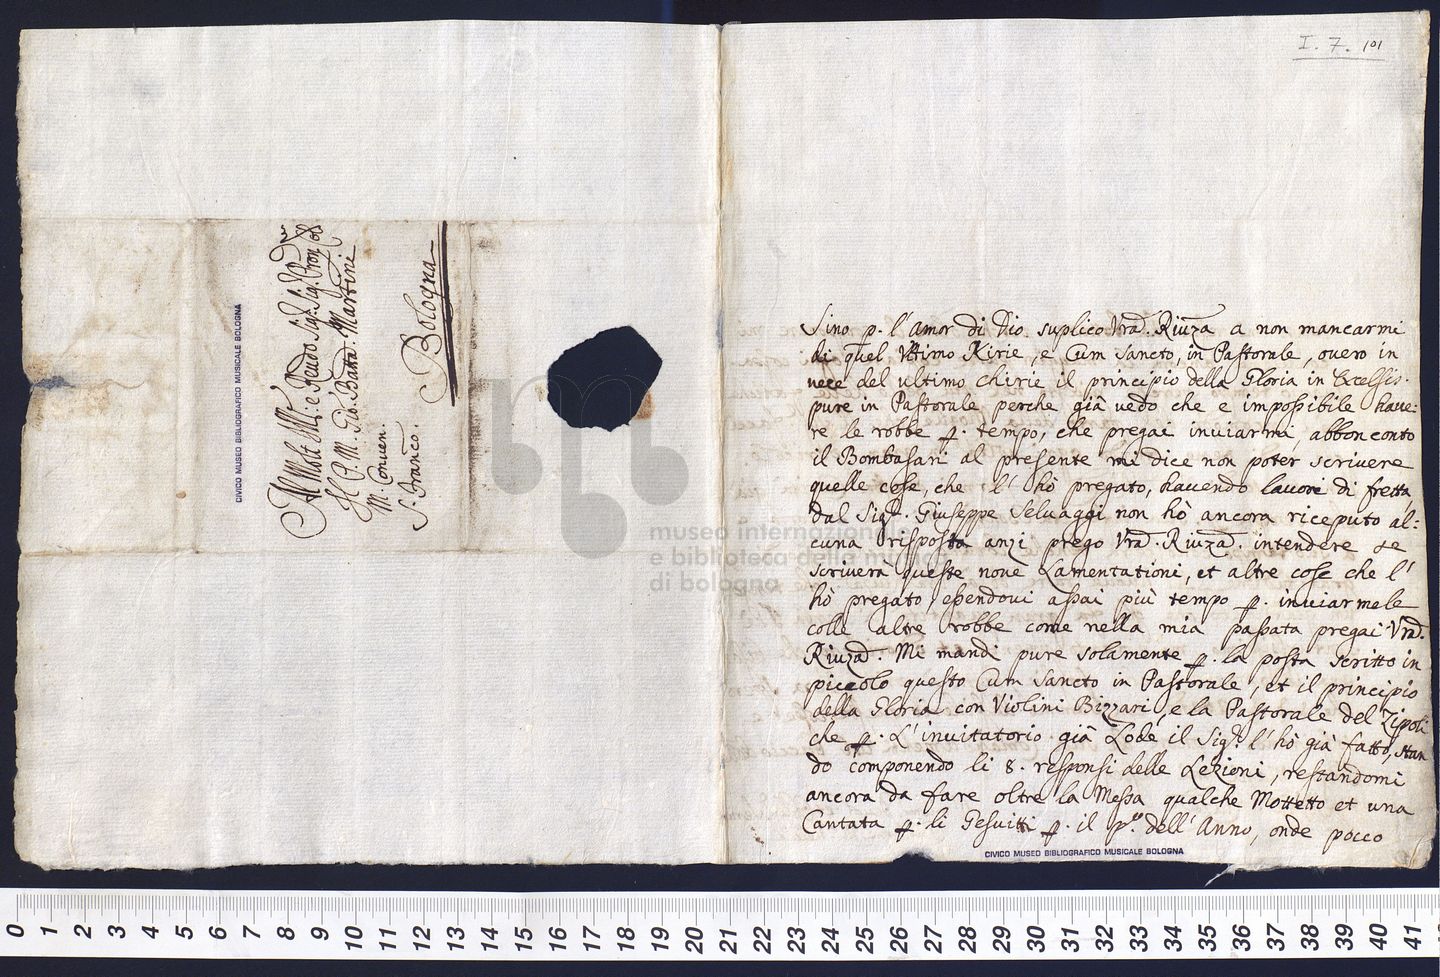 I. 7. 101
Al Molt Illre: e Reudo Sigr: Sigr: Pron: Col
Il P. M. Gio: Batta Martini
M. Conuen.
S. Franco.
Bologna
CIVICO MUSEO BIBLIOGRAFICO MUSICALE BOLOGNA
Sino p. l'amor di Dio suplico Vra. Riuza a non mancarmi
di quel Vltimo Kirie, e Cum Sancto, in Pastorale, ouero in
uece del ultimo Chirie il principio della Gloria in Excelsis.
pure in Pastorale perche già uedo che e impossibile haue:
re le robbe p. tempo, che pregai inuiarmi, abbonconto
il Bombasari al presente mi dice non poter scriuere
quelle cose, che l'hò pregato, hauendo lauori di fretta,
dal Sigr. Giuseppe Seluaggi non hò ancora riceputo al:
cuna risposta anzi prego Vra. Riuza. intendere se
scriuerà queste noue Lamentationi, et altre cose che l'
hò pregato, essendoui assai più tempo p. inuiarmele
colle altre robbe come nella mia passata pregai Vra.
Riuza. Mi mandi pure solamente p. la posta scritto in
piccolo questo Cum Sancto in Pastorale, et il principio
della Gloria con Violini Bizzari, e la Pastorale del Zipoli
che p. L'inuitatorio già Lode il Sigr. l'hò già fatto, stan
do componendo li 8. responsi delle Lezioni, restandomi
ancora da fare oltre la Messa qualche Mottetto et una
Cantata p. li Gesuitti p. il po. dell'Anno, onde pocco
CIVICO MUSEO BIBLIOGRAFICO MUSICALE BOLOGNA
museo internazionale
e biblioteca della musica
di bologna
0 1 2 3 4 5 6 7 8 9 10 11 12 13 14 15 16 17 18 19 20 21 22 23 24 25 26 27 28 29 30 31 32 33 34 35 36 37 38 39 40 41